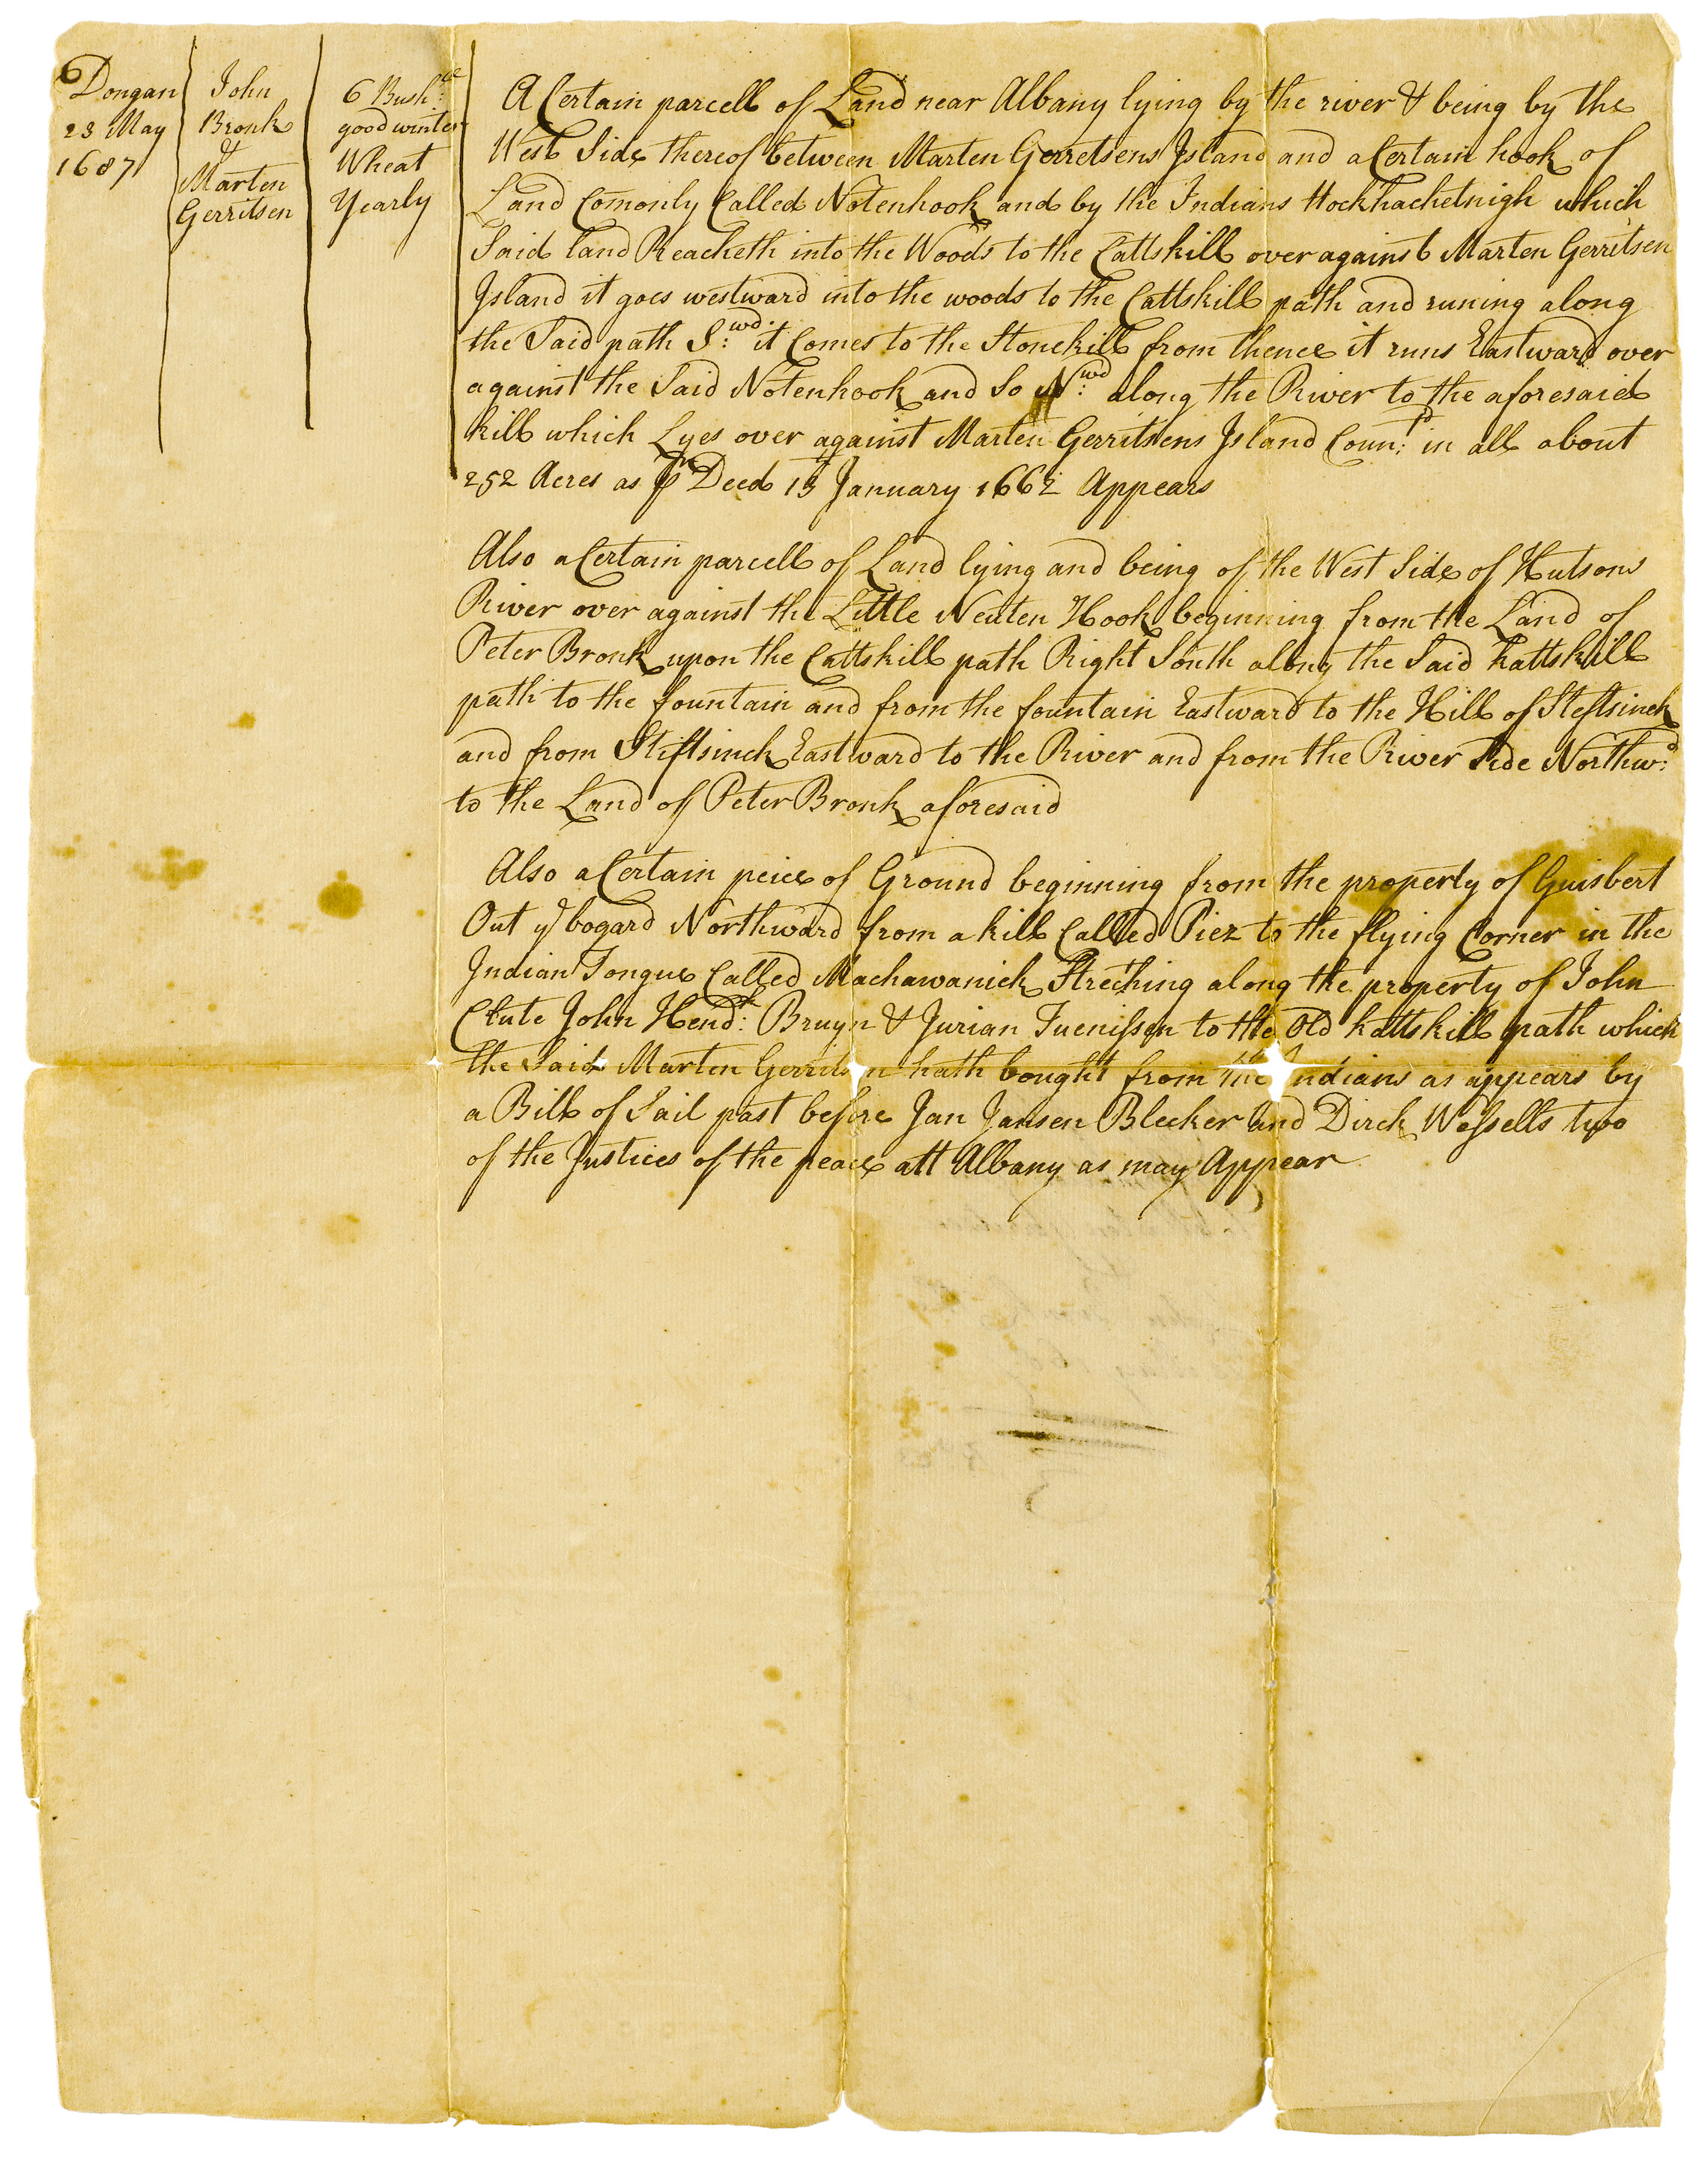 Dongan
23 May
1687
John
Bronk
&
Marten
Gerritsen
6 Bush:ll
good winter
Wheat
Yearly
A Certain parcell of Land near Albany lying by the river & being by the
West Side thereof between Marten Gerretsens Island and a Certain hook of
Land Comonly Called Notenhook and by the Indians Hockhachetnigh which
Said land Reacheth into the Woods to the Cattskill over against Marten Gerritsen
Island it goes westward into the woods to the Cattskill path and runing along
the Said path S:wd it Comes to the Stonekill from thence it runs Eastward over
against the Said Notenhook and So N:wd along the River to the aforesaid
kill which Lyes over against Marten Gerritsens Island Coun:td in all about
252 Acres as pr Deed 13 January 1662 Appears
Also a Certain parcell of Land lying and being of the West Side of Hutsons
River over against the Little Neuten Hook beginning from the Land of
Peter Bronk upon the Cattskill path Right South along the Said kattskill
path to the fountain and from the fountain Eastward to the Hill of Steftsinck
and from Stiftsinck Eastward to the River and from the River Side Northw:d
to the Land of Peter Bronk aforesaid
Also a Certain peice of Ground beginning from the property of Guisbert
Out yt bogard Northward from a kill Called Piez to the flying Corner in the
Indian Tongue Called Machawanick Streching along the property of John
Clute John Hend:k Bruyn & Jurian Tuenissen to the Old kattskill path which
the Said Marten Gerritsen hath bought from the Indians as appears by
a Bill of Sail past before Jan Jansen Bleeker and Dirck Wessells two
of the Justices of the peace att Albany as may Appear